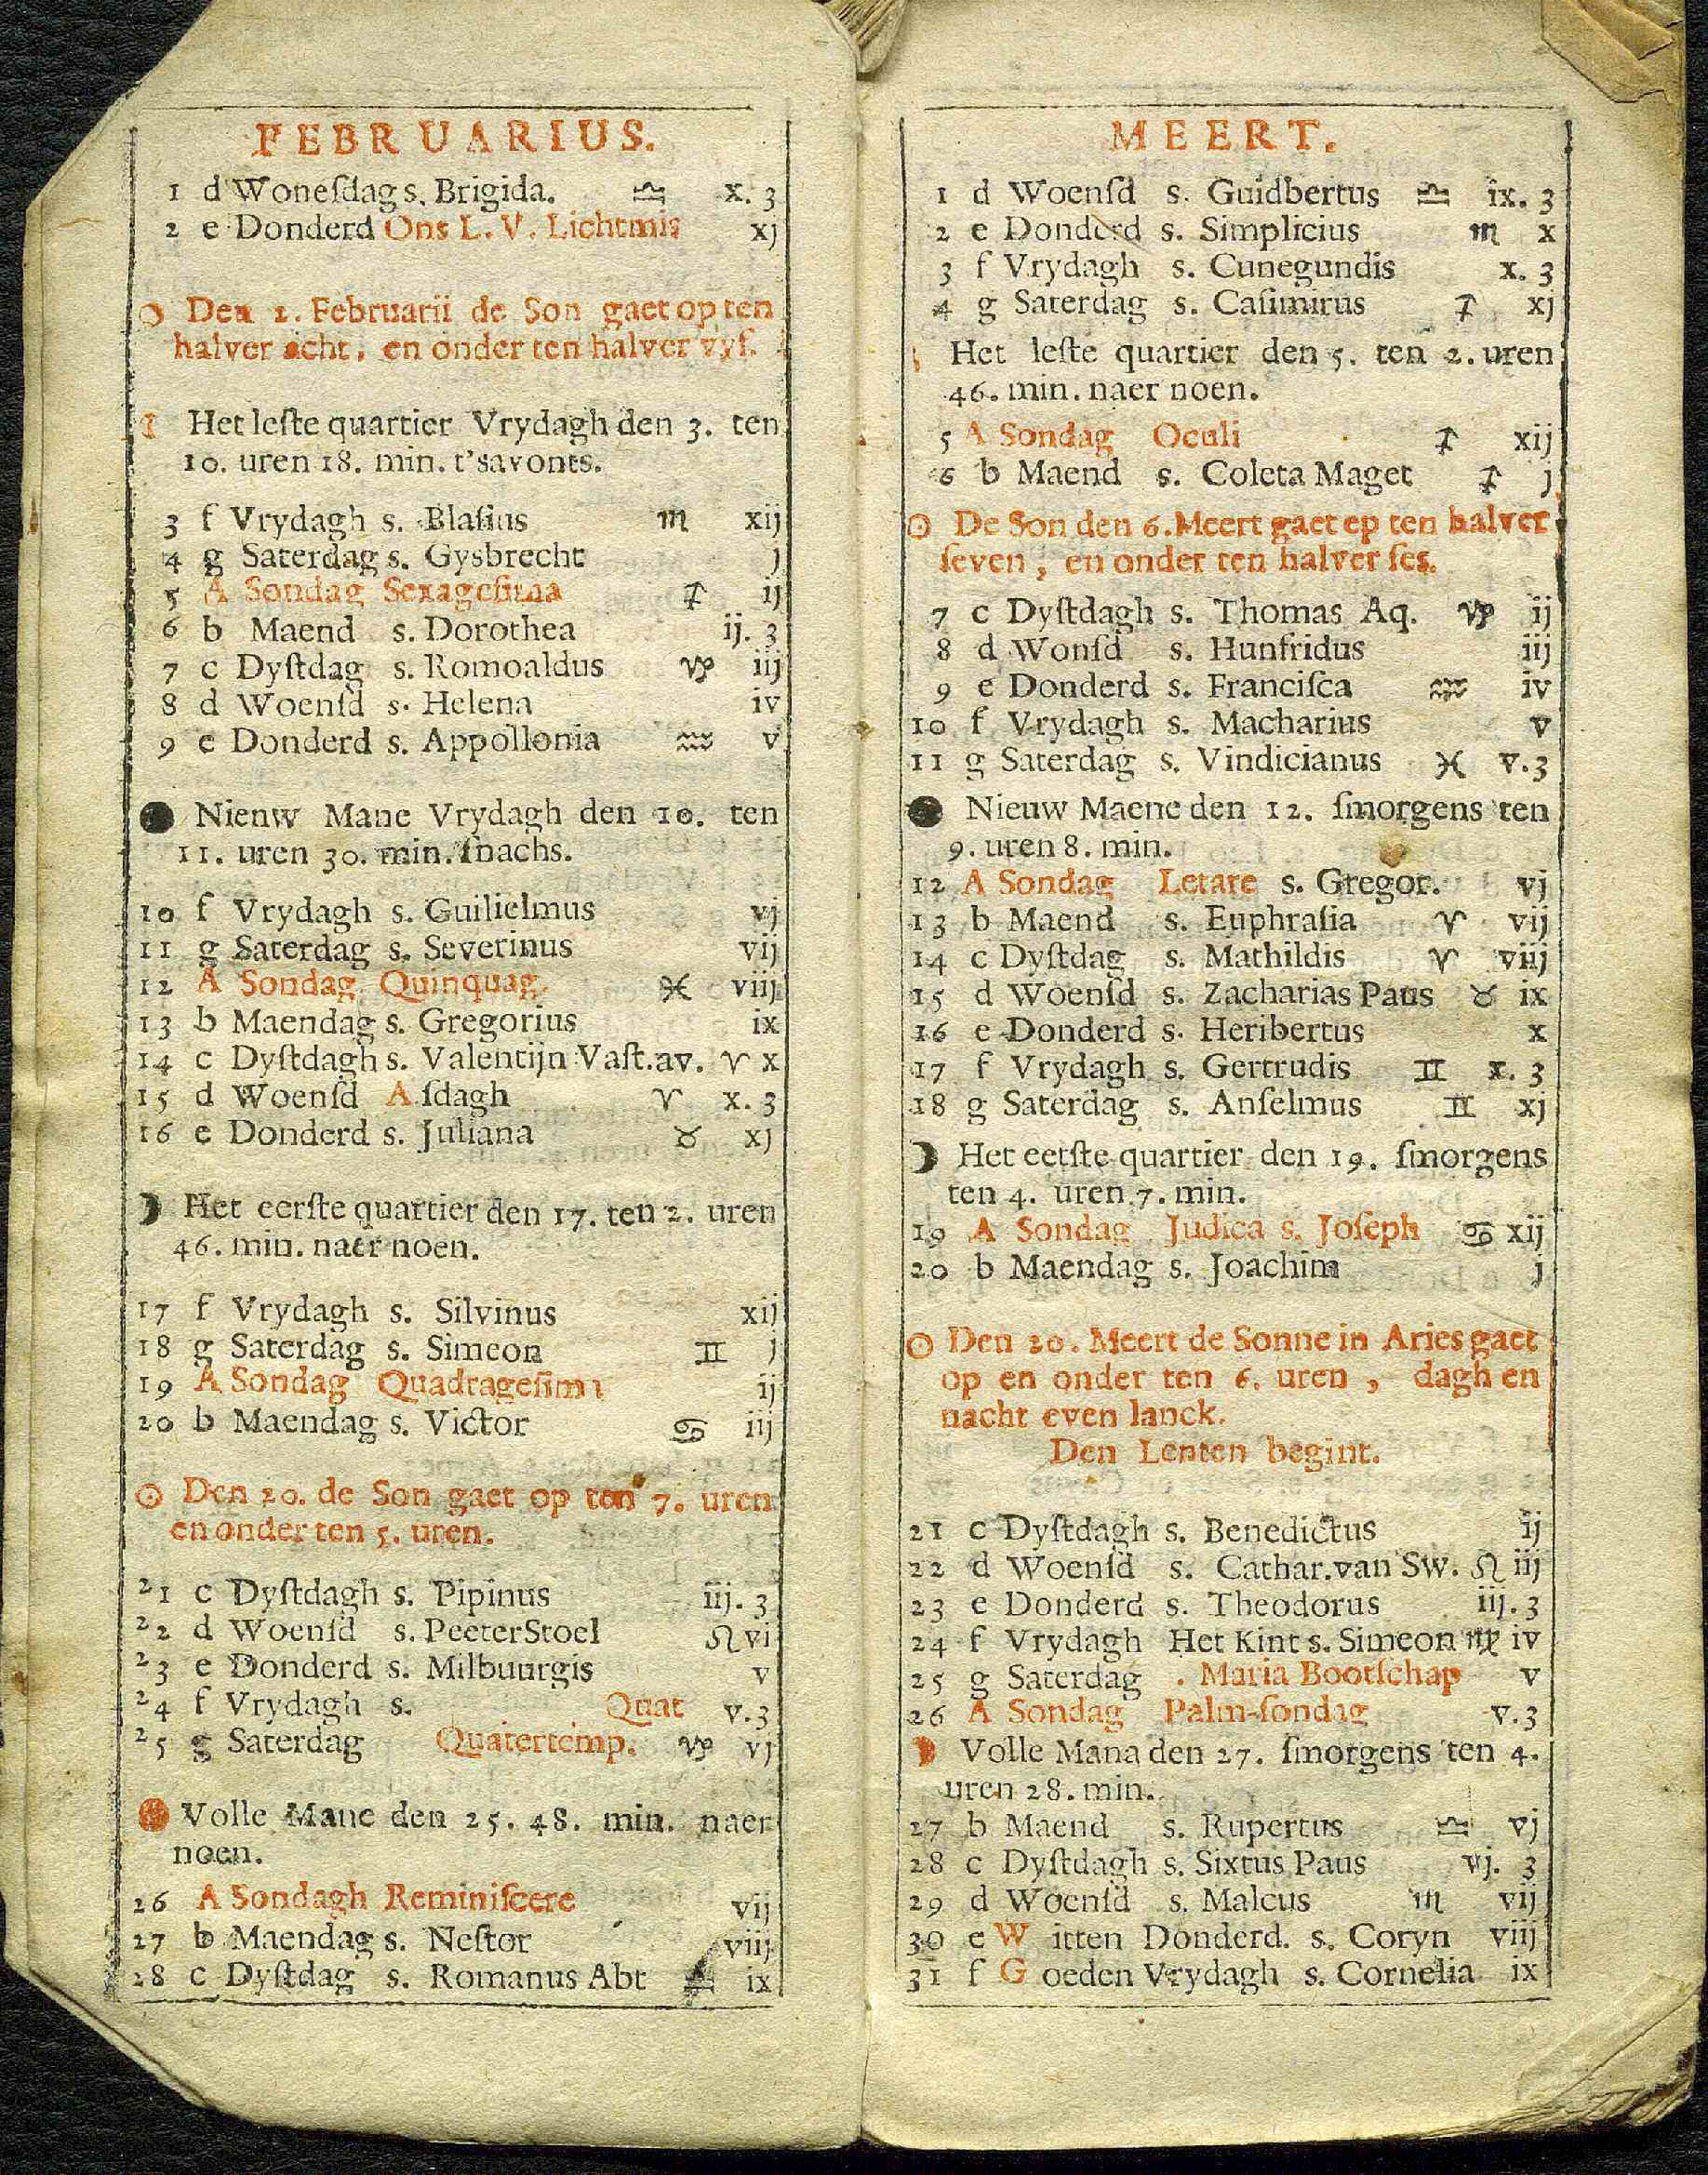 FEBRUARIUS.
1 d Wonesdag s. Brigida. ♎ x. 3
2 e Donderd Ons L. V. Lichtmis xj
☉ Den 2. Februarii de Son gaet op ten
halver acht, en onder ten halver vyf.
Het leſte quartier Vrydagh den 3. ten
10. uren 18. min. t'savonts.
3 f Vrydagh s. Blaſius ♏ xij
4 g Saterdag s. Gysbrecht j
5 A Sondag Sexageſima ♐ ij
6 b Maend s. Dorothea ij. 3
7 c Dyſtdag s. Romoaldus ♑ iij
8 d Woenſd s. Helena iv
9 e Donderd s. Appollonia ♒ v
● Nienw Mane Vrydagh den 10. ten
11. uren 30. min. ſnachs.
10 f Vrydagh s. Guilielmus vj
11 g Saterdag s. Severinus vij
12 A Sondag Quinquag. ♓ viij
13 b Maendag s. Gregorius ix
14 c Dyſtdagh s. Valentijn Vaſt.av. ♈ x
15 d Woenſd A ſdagh ♈ x. 3
16 e Donderd s. Juliana ♉ xj
☽ Het eerſte quartier den 17. ten 2. uren
46. min. naer noen.
17 f Vrydagh s. Silvinus xij
18 g Saterdag s. Simeon ♊ j
19 A Sondag Quadrageſimı ij
20 b Maendag s. Victor ♋ iij
☉ Den 20. de Son gaet op ten 7. uren
en onder ten 5. uren.
21 c Dyſtdagh s. Pipinus iij. 3
22 d Woenſd s. Peeter Stoel ♌ vi
23 e Donderd s. Milbuurgis v
24 f Vrydagh s. Quat v.3
25 g Saterdag Quatertemp. ♑ vj
Volle Mane den 25. 48. min. naer
noen.
26 A Sondagh Reminiſcere vij
27 b Maendag s. Neſtor viij
28 c Dyſtdag s. Romanus Abt ♎ ix
MEERT.
1 d Woenſd s. Guidbertus ♎ ix. 3
2 e Donderd s. Simplicius ♏ x
3 f Vrydagh s. Cunegundis x. 3
4 g Saterdag s. Caſimirus ♐ xj
Het leſte quartier den 5. ten 2. uren
46. min. naer noen.
5 A Sondag Oculi ♐ xij
6 b Maend s. Coleta Maget ♐ j
☉ De Son den 6. Meert gaet ep ten halver
ſeven, en onder ten halver ſes.
7 c Dyſtdagh s. Thomas Aq. ♑ ij
8 d Wonſd s. Hunfridus iij
9 e Donderd s. Franciſca ♒ iv
10 f Vrydagh s. Macharius v
11 g Saterdag s. Vindicianus ♓ v.3
● Nieuw Maene den 12. ſmorgens ten
9. uren 8. min.
12 A Sondag Letare s. Gregor. vj
13 b Maend s. Euphraſia ♈ vij
14 c Dyſtdag s. Mathildis ♈ viij
15 d Woenſd s. Zacharias Paus ♉ ix
16 e Donderd s. Heribertus x
17 f Vrydagh s. Gertrudis ♊ x. 3
18 g Saterdag s. Anſelmus ♊ xj
☽ Het eetſte quartier den 19. ſmorgens
ten 4. uren 7. min.
19 A Sondag Judica s. Joſeph ♋ xij
20 b Maendag s. Joachim j
☉ Den 20. Meert de Sonne in Aries gaet
op en onder ten 6. uren, dagh en
nacht even lanck.
Den Lenten begint.
21 c Dyſtdagh s. Benedictus ij
22 d Woenſd s. Cathar. van Sw. ♌ iij
23 e Donderd s. Theodorus iij. 3
24 f Vrydagh Het Kint s. Simeon ♍ iv
25 g Saterdag . Maria Bootſchap v
26 A Sondag Palm-ſondag v.3
Volle Mana den 27. ſmorgens ten 4.
uren 28. min.
27 b Maend s. Rupertus ♎ vj
28 c Dyſtdagh s. Sixtus Paus vj. 3
29 d Woenſd s. Malcus ♏ vij
30 e W itten Donderd. s. Coryn viij
31 f G oeden Vrydagh s. Cornelia ix